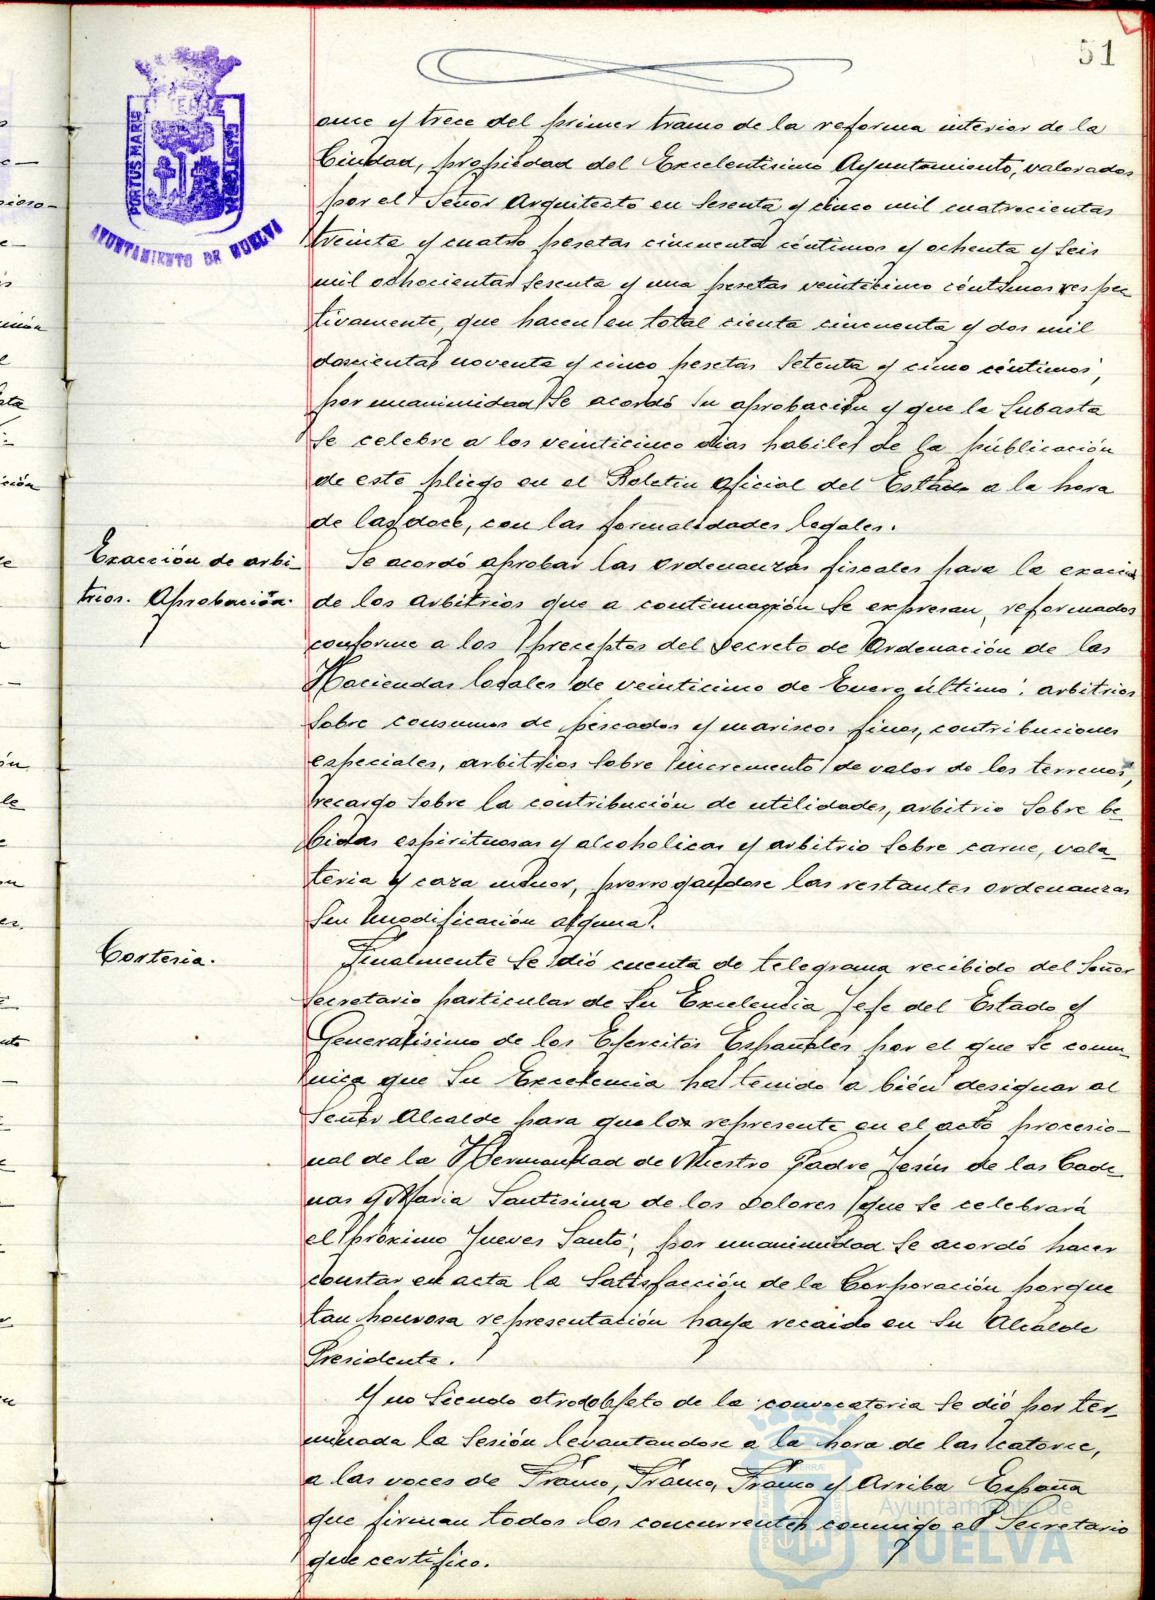 51
PORTUS MARIS ET TERRÆ CUSTODIA
AYUNTAMIENTO DE HUELVA
once y trece del primer tramo de la reforma interior de la
Ciudad, propiedad del Excelentisimo Ayuntamiento, valorados
por el Señor Arquitecto en sesenta y cinco mil cuatrocientas
treinta y cuatro pesetas cincuenta céntimos y ochenta y seis
mil ochocientas sesenta y una pesetas veinticinco céntimos respec
tivamente, que hacen en total cienta cincuenta y dos mil
doscientas noventa y cinco pesetas setenta y cinco céntimos,
por unanimidad se acordó su aprobación y que la subasta
se celebre a los veinticinco dias habiles de la públicación
de este pliego en el Boletin oficial del Estado a la hora
de las doce, con las formalidades legales.
Exacción de arbi-
trios. Aprobación.
Se acordó aprobar las ordenanzas fiscales para la exacción
de los arbitrios que a continuación se expresan, reformados
conforme a los preceptos del Decreto de Ordenación de las
Haciendas locales de veinticinco de Enero último: arbitrios
sobre consumos de pescados y mariscos finos, contribuciones
especiales, arbitrios sobre incremento de valor de los terrenos,
recargo sobre la contribución de utilidades, arbitrio sobre be-
bidas espirituosas y alcoholicas y arbitrio sobre carne, vola-
teria y caza menor, prorrogandose las restantes ordenanzas
sin modificación alguna.
Cortesia.
Finalmente se dió cuenta de telegrama recibido del Señor
Secretario particular de Su Excelencia Jefe del Estado y
Generalisimo de los Ejercitos Españoles por el que se comu-
nica que Su Excelencia ha tenido a bién designar al
Señor Alcalde para que lo represente en el acto procesio-
nal de la Hermandad de Nuestro Padre Jesús de las Cade-
nas y Maria Santisima de los Dolores que se celebrará
el próximo Jueves Santo; por unanimidad se acordó hacer
constar en acta la satisfacción de la Corporación porque
tan honrosa representación haya recaido en su Alcalde
Presidente.
Y no siendo otro objeto de la convocatoria se dió por ter-
minada la sesión levantandose a la hora de las catorce,
a las voces de Franco, Franco, Franco y Arriba España
que firman todos los concurrentes conmigo el Secretario
que certifico.
Ayuntamiento de
HUELVA